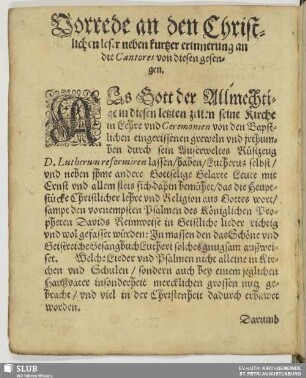 Vorrede an den Christ-
lichen leser neben kurtzer erinnerung an
die Cantores von diesen gesen-
gen.
DAs Gott der Allmechti-
ge in diesen letzten zeiten seine Kirche
in Lehre vnd Ceremonien von den Bapst-
lichen eingerissenen greweln vnd jrthum-
ben durch sein Auserweltes Rüstzeug
D. Lutherum reformiren lassen / haben / Lutherus selbst /
vnd neben jhme andere Gottselige Gelarte Leute mit
Ernst vnd allem fleis sich dahin bemühet / das die Heupt-
stücke Christlicher lehre vnd Religion aus Gottes wort /
sampt den vornempsten Psalmen des Königlichen Pro-
pheten Davids Reimweise in Geistliche lieder richtig
vnd wol gefasset würden: Jn massen den das Schöne vnd
Geistreiche Gesangbuch Lutheri solches gnugsam auswei-
set. Welche Lieder vnd Psalmen nicht alleine in Kir-
chen vnd Schulen / sondern auch bey einem jeglichen
Haußvater insonderheit mercklichen grossen nutz ge-
bracht / vnd viel in der Christenheit dadurch erbawet
worden.
Darumb
SLUB
Wir führen Wissen.
EV.-LUTH. KIRCHGEMEINDE
ST. PETRI AUGUSTUSBURG